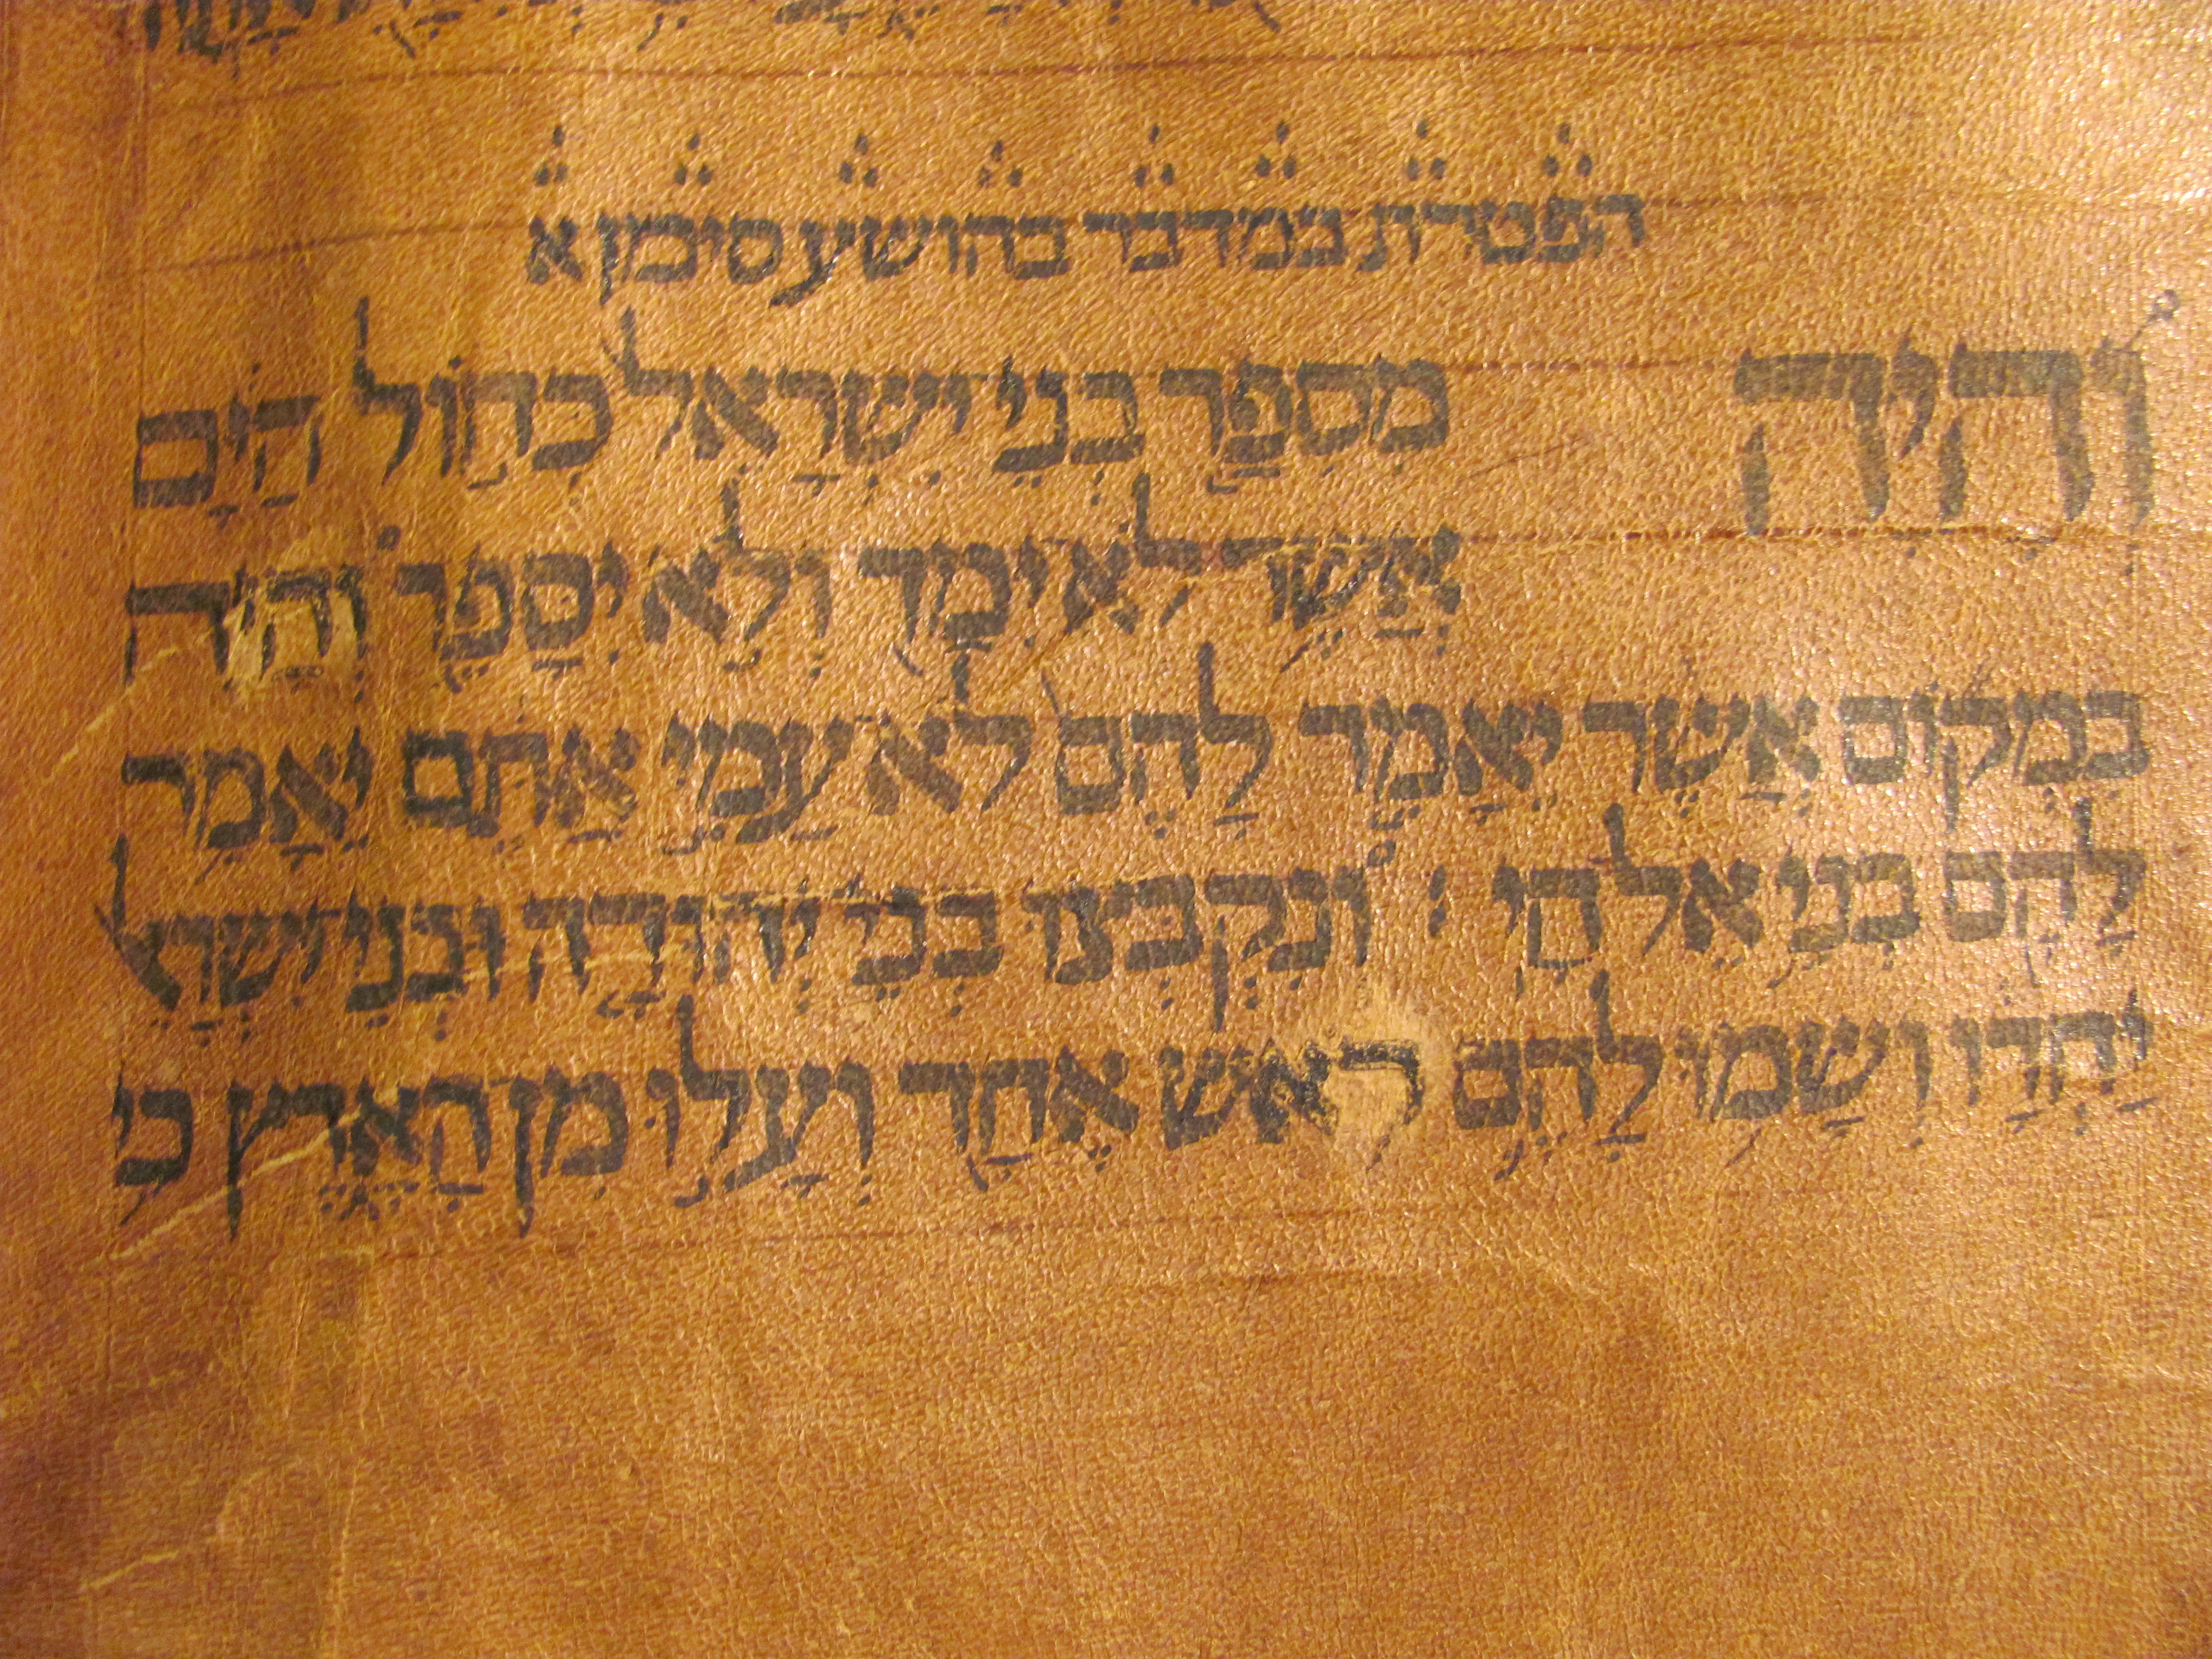 הפטרת במדבר בהושע סימן א
וְהָיָה מִסְפַּר בְּנֵי יִשְׂרָאֵל כְּחוֹל הַיָּם
אֲשֶׁר לֹא יִמַּד וְלֹא יִסָּפֵר וְהָיָה
בִּמְקוֹם אֲשֶׁר יֵאָמֵר לָהֶם לֹא עַמִּי אַתֶּם יֵאָמֵר
לָהֶם בְּנֵי אֵל חָי וְנִקְבְּצוּ בְּנֵי יְהוּדָה וּבְנֵי יִשְׂרָאֵל
יַחְדָּו וְשָׂמוּ לָהֶם רֹאשׁ אֶחָד וְעָלוּ מִן הָאָרֶץ כִּי